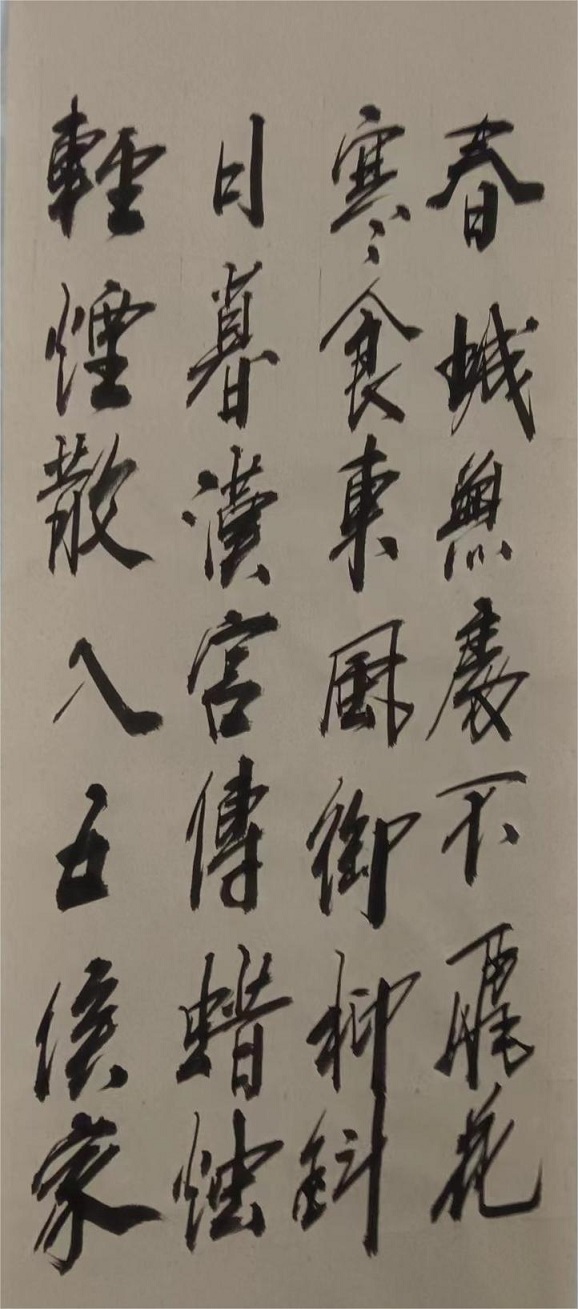 春城無處不飛花
寒食東風御柳斜
日暮漢宮傳蜡烛
輕煙散入五侯家